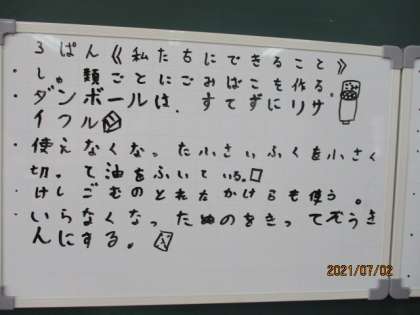 3ぱん《私たちにできること》
・し。類ごとにごみばこを作る。
・ダンボールは、すてずにリサ
イフル
・使えなくなった小さいふくを小さく
切って油をふいている。
・けしごむのとれたかけらも使う。
・いらなくなったぬのをきってぞうき
んにする。
2021/07/02